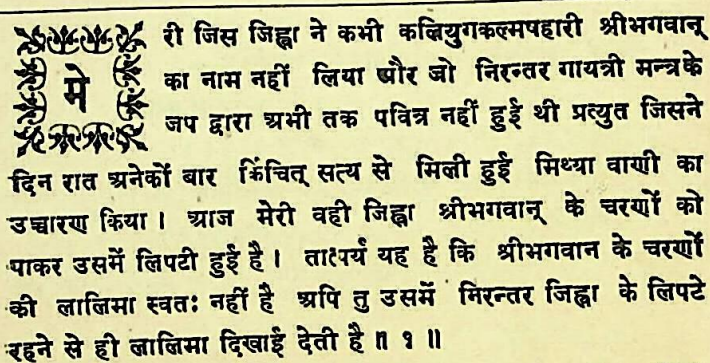 मेरी जिस जिह्वा ने कभी कलियुगकल्मषहारी श्रीभगवान्
का नाम नहीं लिया और जो निरन्तर गायत्री मन्त्रके
जप द्वारा अभी तक पवित्र नहीं हुई थी प्रत्युत जिसने
दिन रात अनेकों बार किंचित् सत्य से मिली हुई मिथ्या वाणी का
उच्चारण किया। आज मेरी वही जिह्वा श्रीभगवान् के चरणों को
पाकर उसमें लिपटी हुई है। तात्पर्य यह है कि श्रीभगवान के चरणों
की लालिमा स्वतः नहीं है अपि तु उसमें मिरन्तर जिह्वा के लिपटे
रहने से ही लालिमा दिखाई देती है ॥ १ ॥